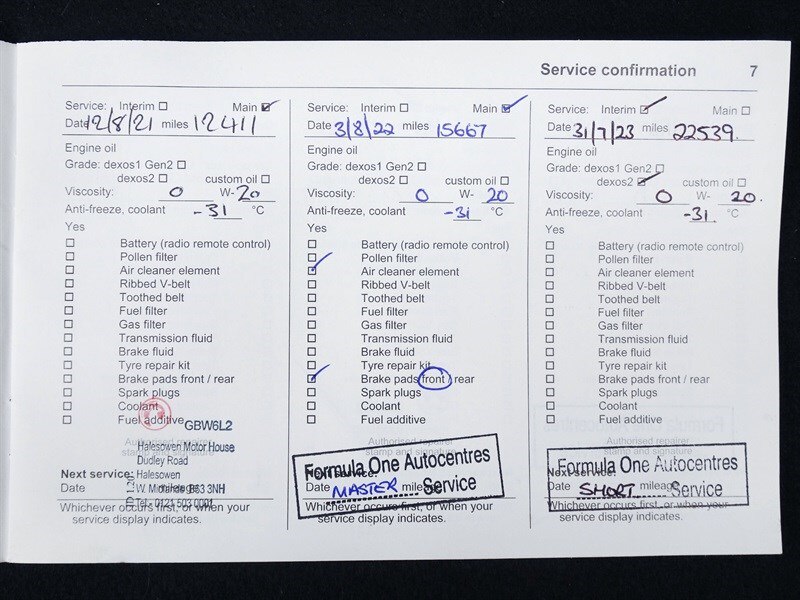 Service confirmation 7
Service: Interim Main
Date 12/8/21 miles 12411
Engine oil
Grade: dexos1 Gen2
dexos2 custom oil
Viscosity: 0 W-20
Anti-freeze, coolant -31 °C
Yes
Battery (radio remote control)
Pollen filter
Air cleaner element
Ribbed V-belt
Toothed belt
Fuel filter
Gas filter
Transmission fluid
Brake fluid
Tyre repair kit
Brake pads front / rear
Spark plugs
Coolant
Fuel additive
GBW6L2
Authorised repairer
Halesowen Motor House
Dudley Road
Next service: Halesowen
Date W Midlands B63 3NH
Tel: 0121 503 0091
Whichever occurs first, or when your
service display indicates.
Service: Interim Main
Date 3/8/22 miles 15667
Engine oil
Grade: dexos1 Gen2
dexos2 custom oil
Viscosity: 0 W- 20
Anti-freeze, coolant -31 °C
Yes
Battery (radio remote control)
Pollen filter
Air cleaner element
Ribbed V-belt
Toothed belt
Fuel filter
Gas filter
Transmission fluid
Brake fluid
Tyre repair kit
Brake pads front / rear
Spark plugs
Coolant
Fuel additive
Authorised repairer
stamp and signature
Formula One Autocentres
Date MASTER mileage Service
Whichever occurs first, or when your
service display indicates.
Service: Interim Main
Date 31/7/23 miles 22539
Engine oil
Grade: dexos1 Gen2
dexos2 custom oil
Viscosity: 0 W- 20
Anti-freeze, coolant -31 °C
Yes
Battery (radio remote control)
Pollen filter
Air cleaner element
Ribbed V-belt
Toothed belt
Fuel filter
Gas filter
Transmission fluid
Brake fluid
Tyre repair kit
Brake pads front / rear
Spark plugs
Coolant
Fuel additive
Authorised repairer
stamp and signature
Next service:
Formula One Autocentres
Date SHORT mileage Service
Whichever occurs first, or when your
service display indicates.